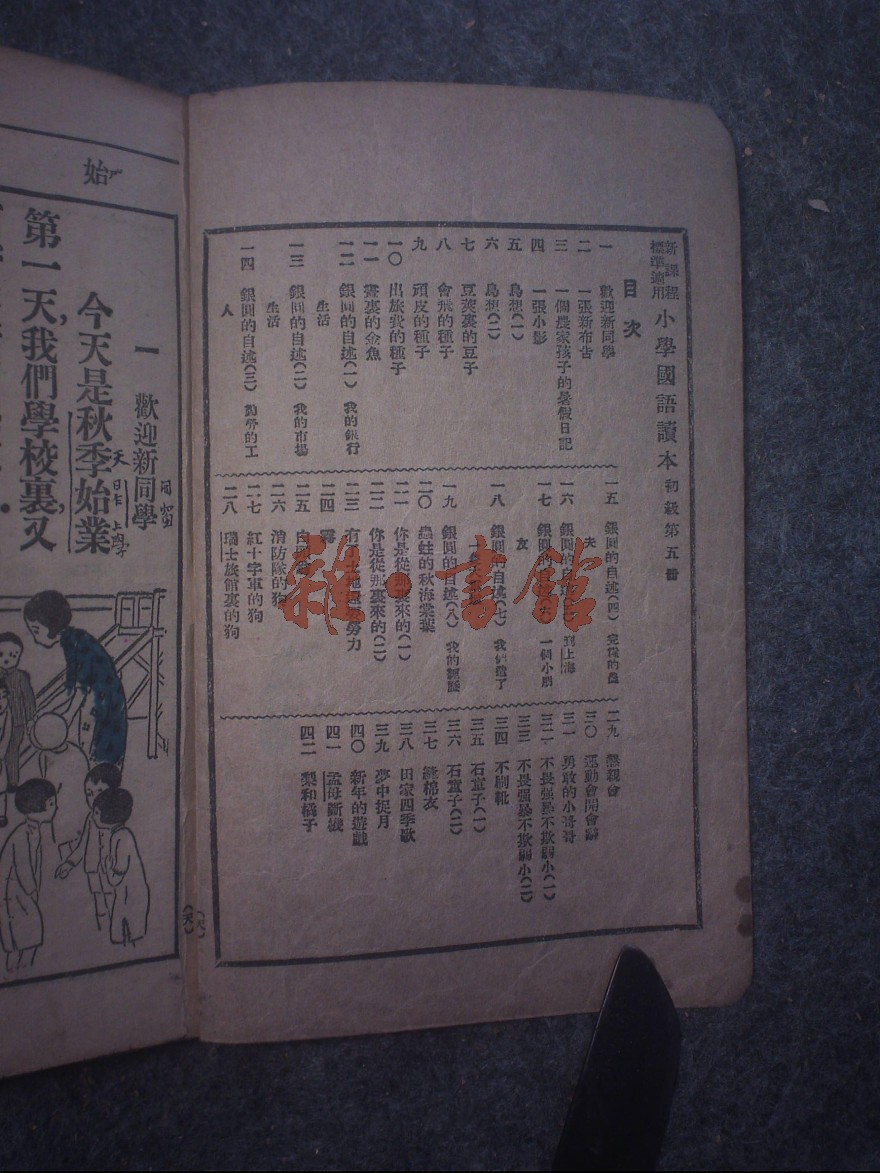 新課程標準適用 小學國語讀本 初級第五冊
目次
一 歡迎新同學
二 一張新布告
三 一個農家孩子的暑假日記
四 一張小影
五 鳥想(一)
六 鳥想(二)
七 豆莢裏的豆子
八 會飛的種子
九 頑皮的種子
一〇 出旅費的種子
一一 畫裏的金魚
一二 銀圓的自述(一) 我的銀行
生活
一三 銀圓的自述(二) 我的市場
生活
一四 銀圓的自述(三) 勤勞的工
人
一五 銀圓的自述(四) 完糧的農
夫
一六 銀圓的自述 到上海
一七 銀圓的自述 一個小朋
友
一八 銀圓的自述(七) 我們做了
一九 銀圓的自述(八) 我的經歷
二〇 蟲蛀的秋海棠葉
二一 你是從那裏來的(一)
二二 你是從那裏來的(二)
二三 有了土地還要勞力
二四 霧
二五
二六 消防隊的狗
二七 紅十字軍的狗
二八 瑞士旅館裏的狗
二九 懇親會
三〇 運動會開會辭
三一 勇敢的小哥哥
三二 不畏强暴不欺弱小(一)
三三 不畏强暴不欺弱小(二)
三四 不刷靴
三五 石童子(一)
三六 石童子(二)
三七 縫棉衣
三八 田家四季歌
三九 夢中捉月
四〇 新年的遊戲
四一 孟母斷機
四二 梨和橘子
雜·書館
始
一 歡迎新同學
今天是秋季始業
第一天,我們學校裏,又